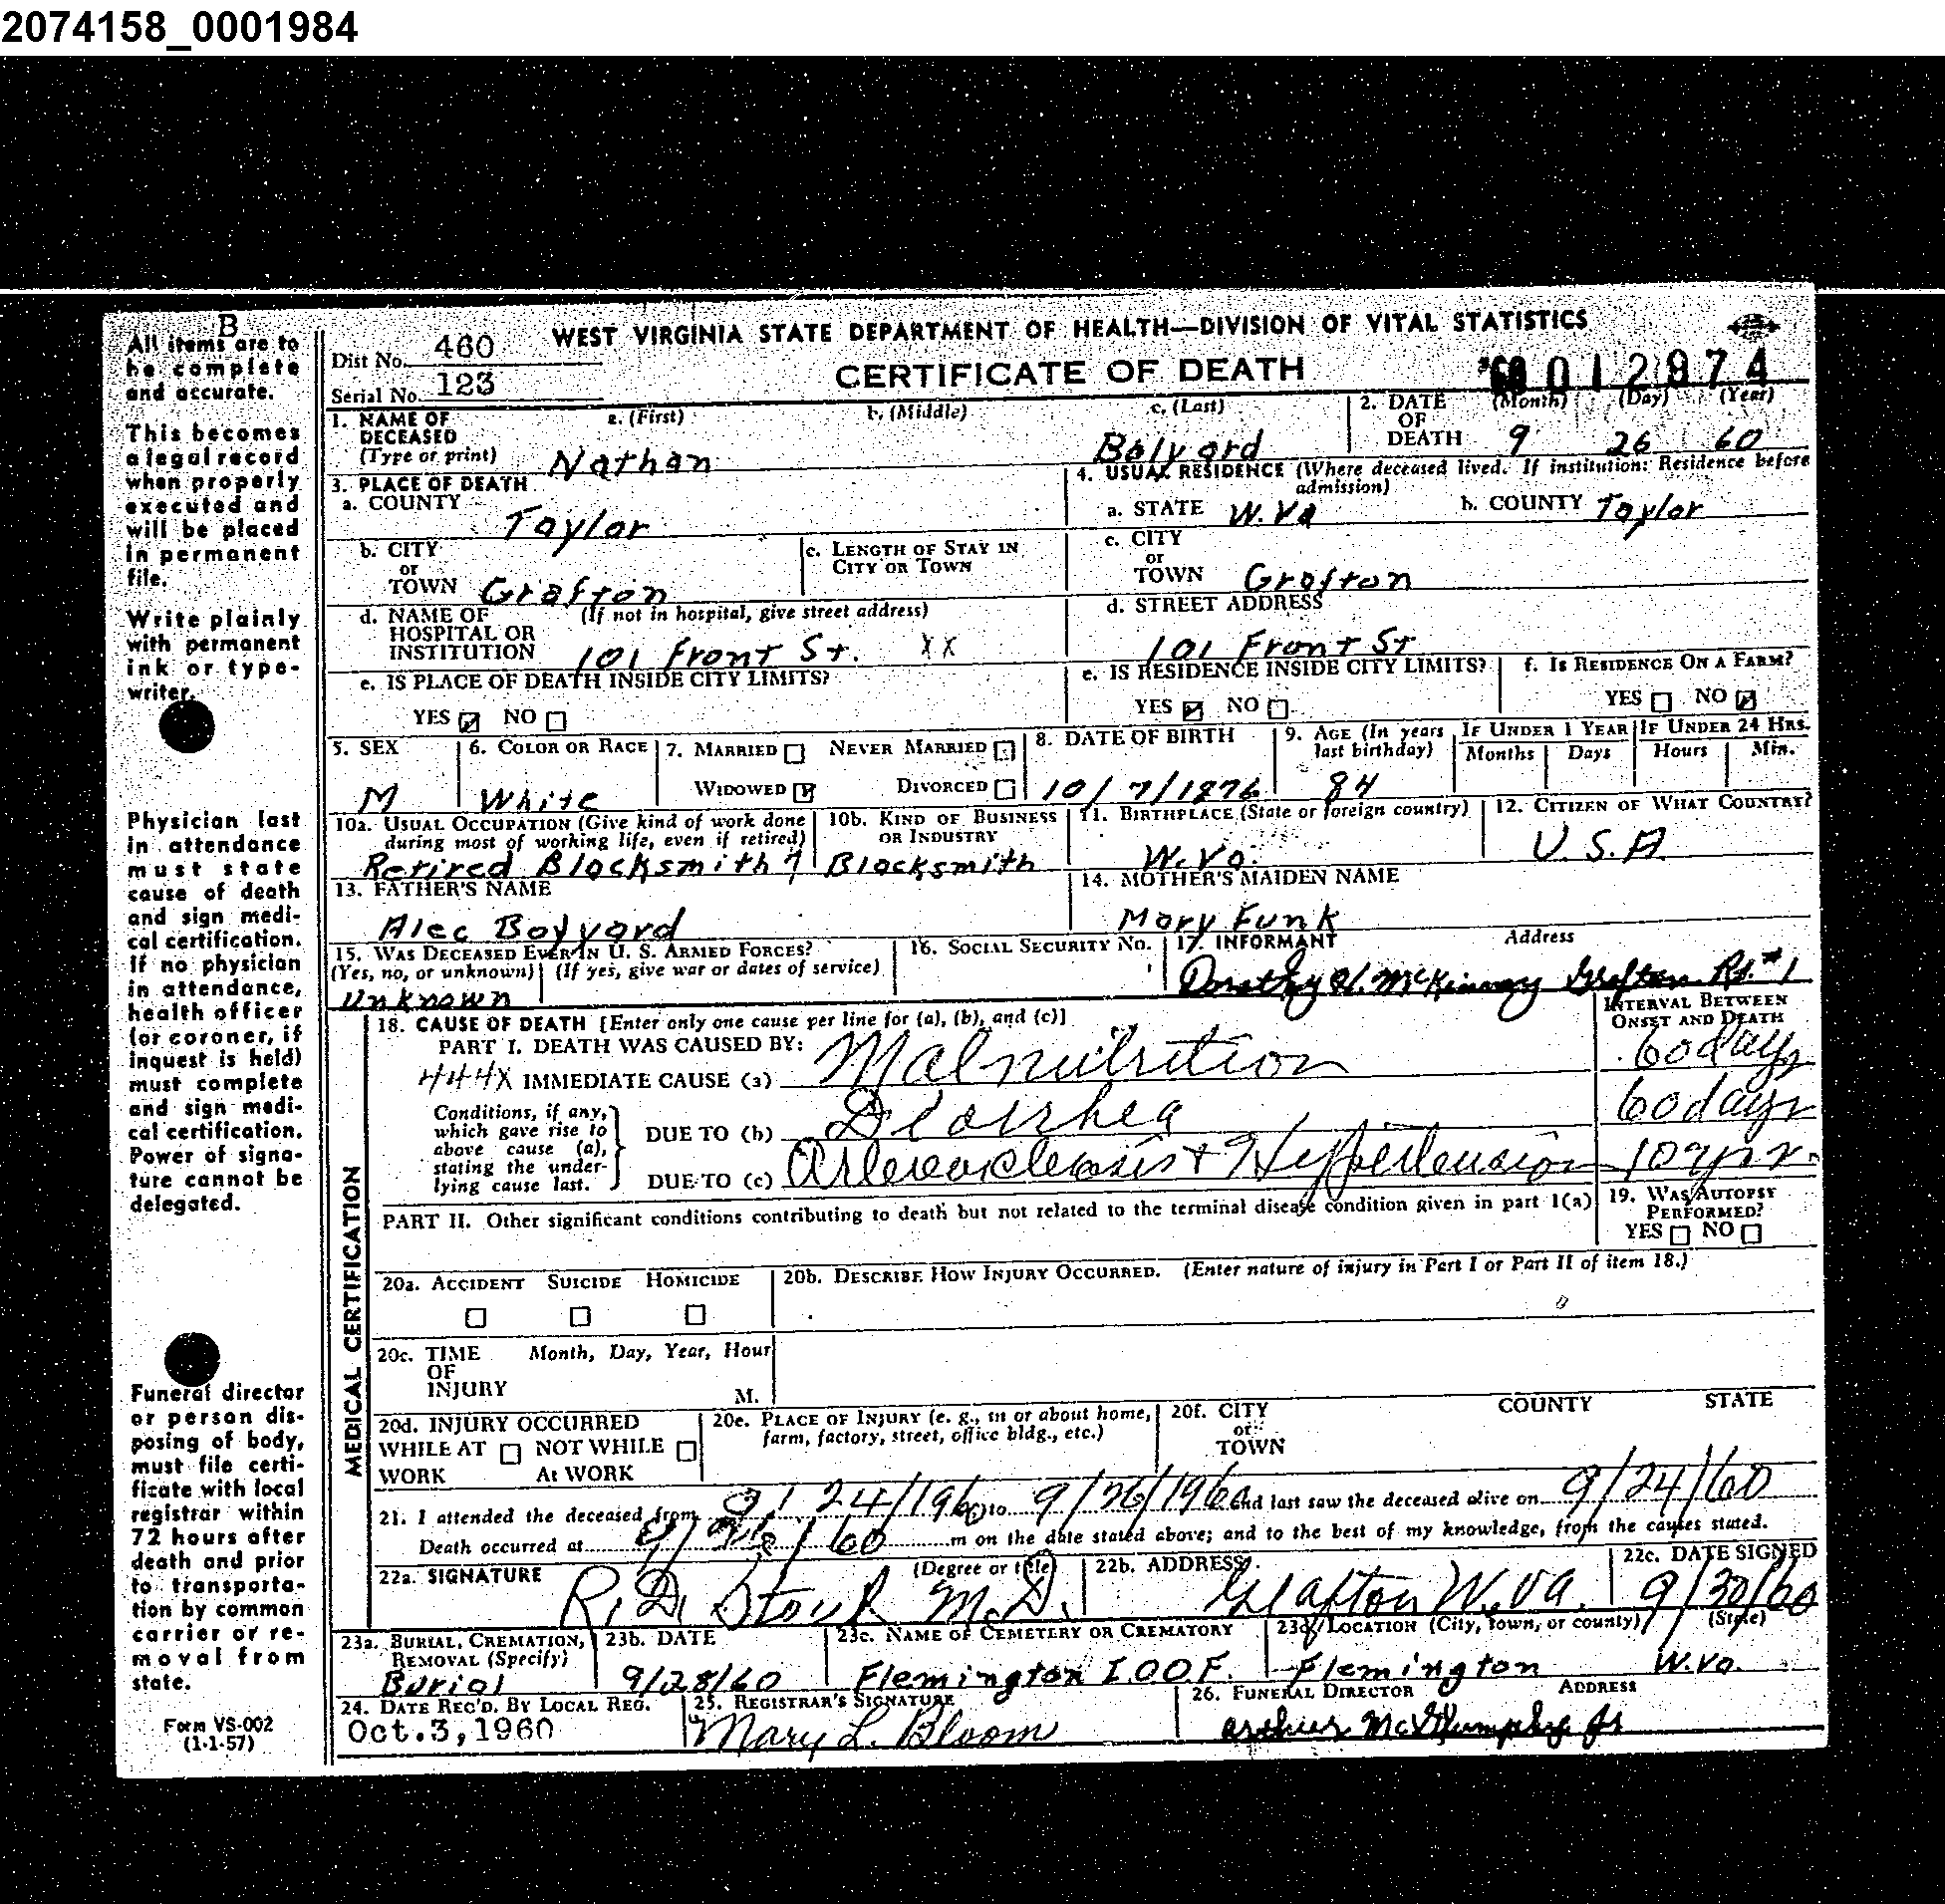 2074158_0001984
B
All items are to be complete and accurate.
This becomes a legal record when properly executed and will be placed in permanent file.
Write plainly with permanent ink or typewriter.
Physician last in attendance must state cause of death and sign medical certification. If no physician in attendance, health officer (or coroner, if inquest is held) must complete and sign medical certification. Power of signature cannot be delegated.
Funeral director or person disposing of body, must file certificate with local registrar within 72 hours after death and prior to transportation by common carrier or removal from state.
Form VS-002
(1-1-57)
Dist No. 460
Serial No. 123
WEST VIRGINIA STATE DEPARTMENT OF HEALTH—DIVISION OF VITAL STATISTICS
CERTIFICATE OF DEATH
012974
1. NAME OF DECEASED (Type or print)
a. (First) b. (Middle) c. (Last)
Nathan Bolyard
2. DATE OF DEATH (Month) (Day) (Year)
9 26 60
3. PLACE OF DEATH
a. COUNTY Taylor
b. CITY or TOWN Grafton
c. LENGTH OF STAY IN CITY OR TOWN
d. NAME OF HOSPITAL OR INSTITUTION (If not in hospital, give street address)
101 Front St. XX
e. IS PLACE OF DEATH INSIDE CITY LIMITS?
YES NO
4. USUAL RESIDENCE (Where deceased lived. If institution: Residence before admission)
a. STATE W.Va b. COUNTY Taylor
c. CITY or TOWN Grafton
d. STREET ADDRESS
101 Front St
e. IS RESIDENCE INSIDE CITY LIMITS?
YES NO
f. IS RESIDENCE ON A FARM?
YES NO
5. SEX M
6. COLOR OR RACE White
7. MARRIED NEVER MARRIED
WIDOWED DIVORCED
8. DATE OF BIRTH 10/7/1876
9. AGE (In years last birthday) 84
IF UNDER 1 YEAR Months Days
IF UNDER 24 HRS. Hours Min.
10a. USUAL OCCUPATION (Give kind of work done during most of working life, even if retired)
Retired Blacksmith
10b. KIND OF BUSINESS OR INDUSTRY
Blacksmith
11. BIRTHPLACE (State or foreign country)
W.Va.
12. CITIZEN OF WHAT COUNTRY?
U.S.A.
13. FATHER'S NAME
Alec Bolyard
14. MOTHER'S MAIDEN NAME
Mary Funk
15. WAS DECEASED EVER IN U. S. ARMED FORCES?
(Yes, no, or unknown) (If yes, give war or dates of service)
Unknown
16. SOCIAL SECURITY NO.
17. INFORMANT Address
Dorothy McKinney Grafton Rt. #1
MEDICAL CERTIFICATION
18. CAUSE OF DEATH [Enter only one cause per line for (a), (b), and (c)]
INTERVAL BETWEEN ONSET AND DEATH
PART I. DEATH WAS CAUSED BY:
444X IMMEDIATE CAUSE (a) Malnutrition 60 days
Conditions, if any, which gave rise to above cause (a), stating the underlying cause last.
DUE TO (b) Diarrhea 60 days
DUE TO (c) Arteriosclerosis + Hypertension 10 yrs.
PART II. Other significant conditions contributing to death but not related to the terminal disease condition given in part 1(a)
19. WAS AUTOPSY PERFORMED?
YES NO
20a. ACCIDENT SUICIDE HOMICIDE
20b. DESCRIBE HOW INJURY OCCURRED. (Enter nature of injury in Part I or Part II of item 18.)
20c. TIME OF INJURY Month, Day, Year, Hour
M.
20d. INJURY OCCURRED
WHILE AT WORK NOT WHILE At WORK
20e. PLACE OF INJURY (e. g., in or about home, farm, factory, street, office bldg., etc.)
20f. CITY or TOWN COUNTY STATE
21. I attended the deceased from 9/24/1960 to 9/26/1960 and last saw the deceased alive on 9/24/60
Death occurred at 9/26/60 m on the date stated above; and to the best of my knowledge, from the causes stated.
22a. SIGNATURE (Degree or title)
R. D. Stout M.D.
22b. ADDRESS
Grafton W.Va.
22c. DATE SIGNED
9/30/60
23a. BURIAL, CREMATION, REMOVAL (Specify)
Burial
23b. DATE
9/28/60
23c. NAME OF CEMETERY OR CREMATORY
Flemington I.O.O.F.
23d. LOCATION (City, town, or county) (State)
Flemington W.Va.
24. DATE REC'D. BY LOCAL REG.
Oct.3,1960
25. REGISTRAR'S SIGNATURE
Mary L. Bloom
26. FUNERAL DIRECTOR ADDRESS
Arthur